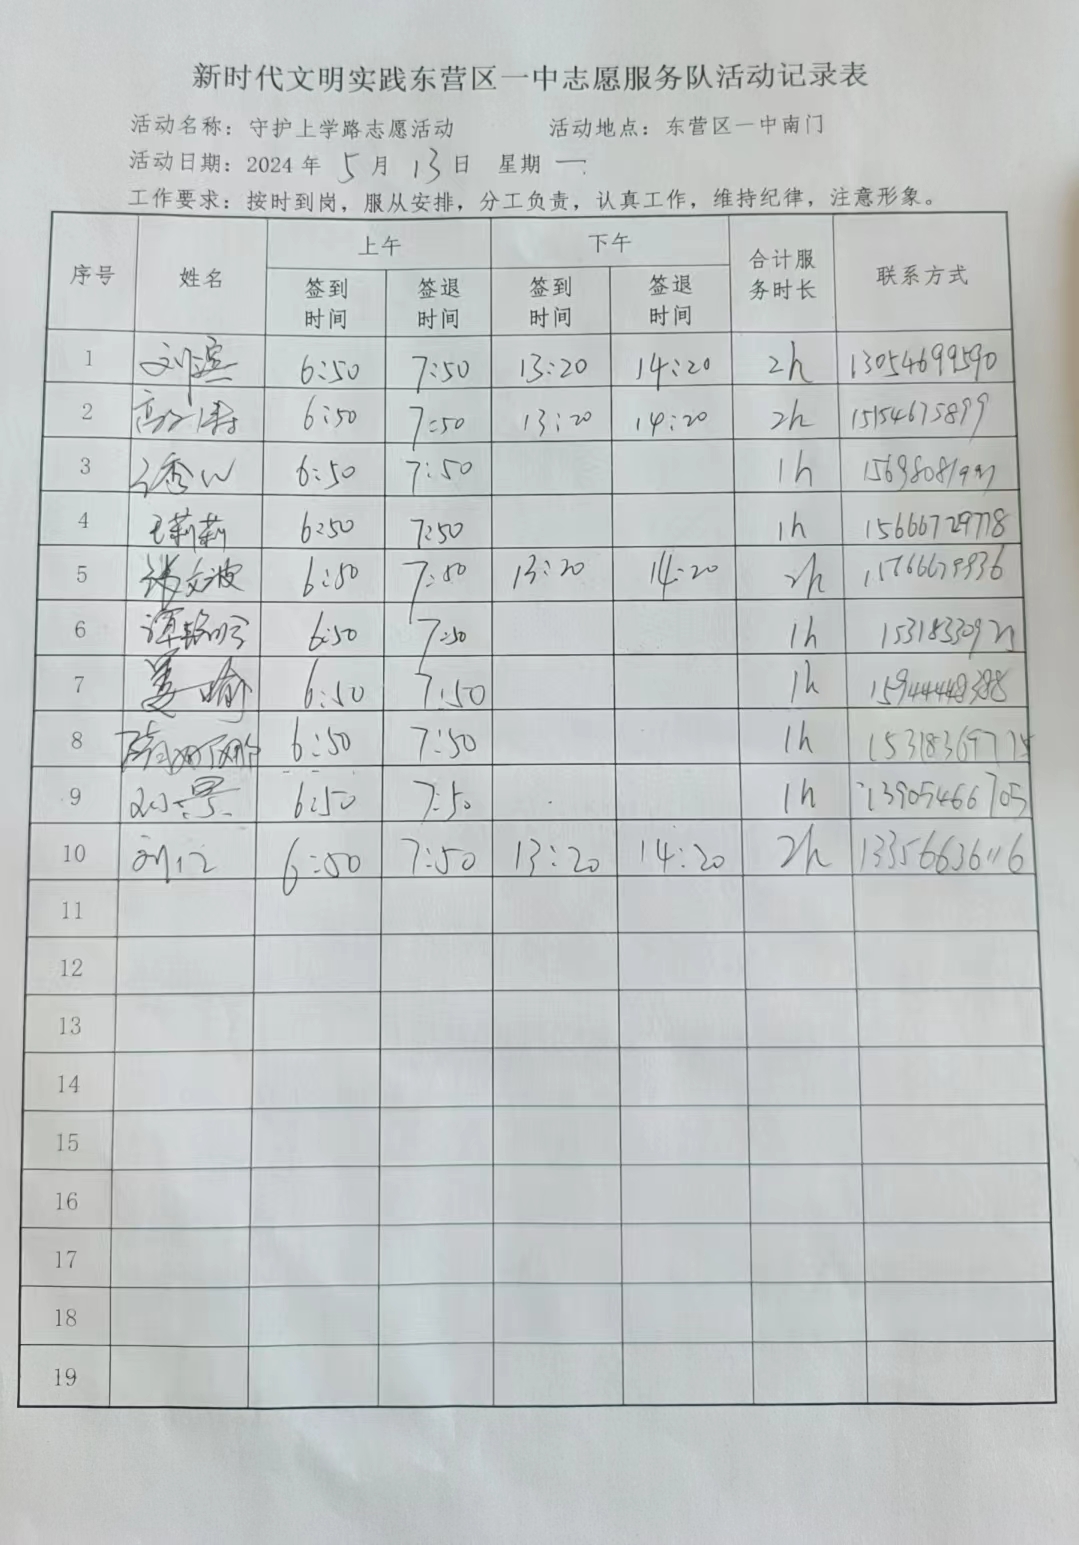 新时代文明实践东营区一中志愿服务队活动记录表
活动名称：守护上学路志愿活动 活动地点：东营区一中南门
活动日期：2024年 5月 13日 星期 一
工作要求：按时到岗，服从安排，分工负责，认真工作，维持纪律，注意形象。
序号 姓名 上午 下午 合计服务时长 联系方式
签到时间 签退时间 签到时间 签退时间
1 刘滨 6:50 7:50 13:20 14:20 2h 13054699590
2 6:50 7:50 13:20 14:20 2h 15154675899
3 6:50 7:50 1h
4 王莉莉 6:50 7:50 1h 15666729778
5 张文波 6:50 7:50 13:20 14:20 2h
6 6:50 7:50 1h
7 姜喻 6:50 7:50 1h 15944448388
8 6:50 7:50 1h
9 刘景 6:50 7:50 1h 13905466705
10 刘仁 6:50 7:50 13:20 14:20 2h 13356636116
11
12
13
14
15
16
17
18
19